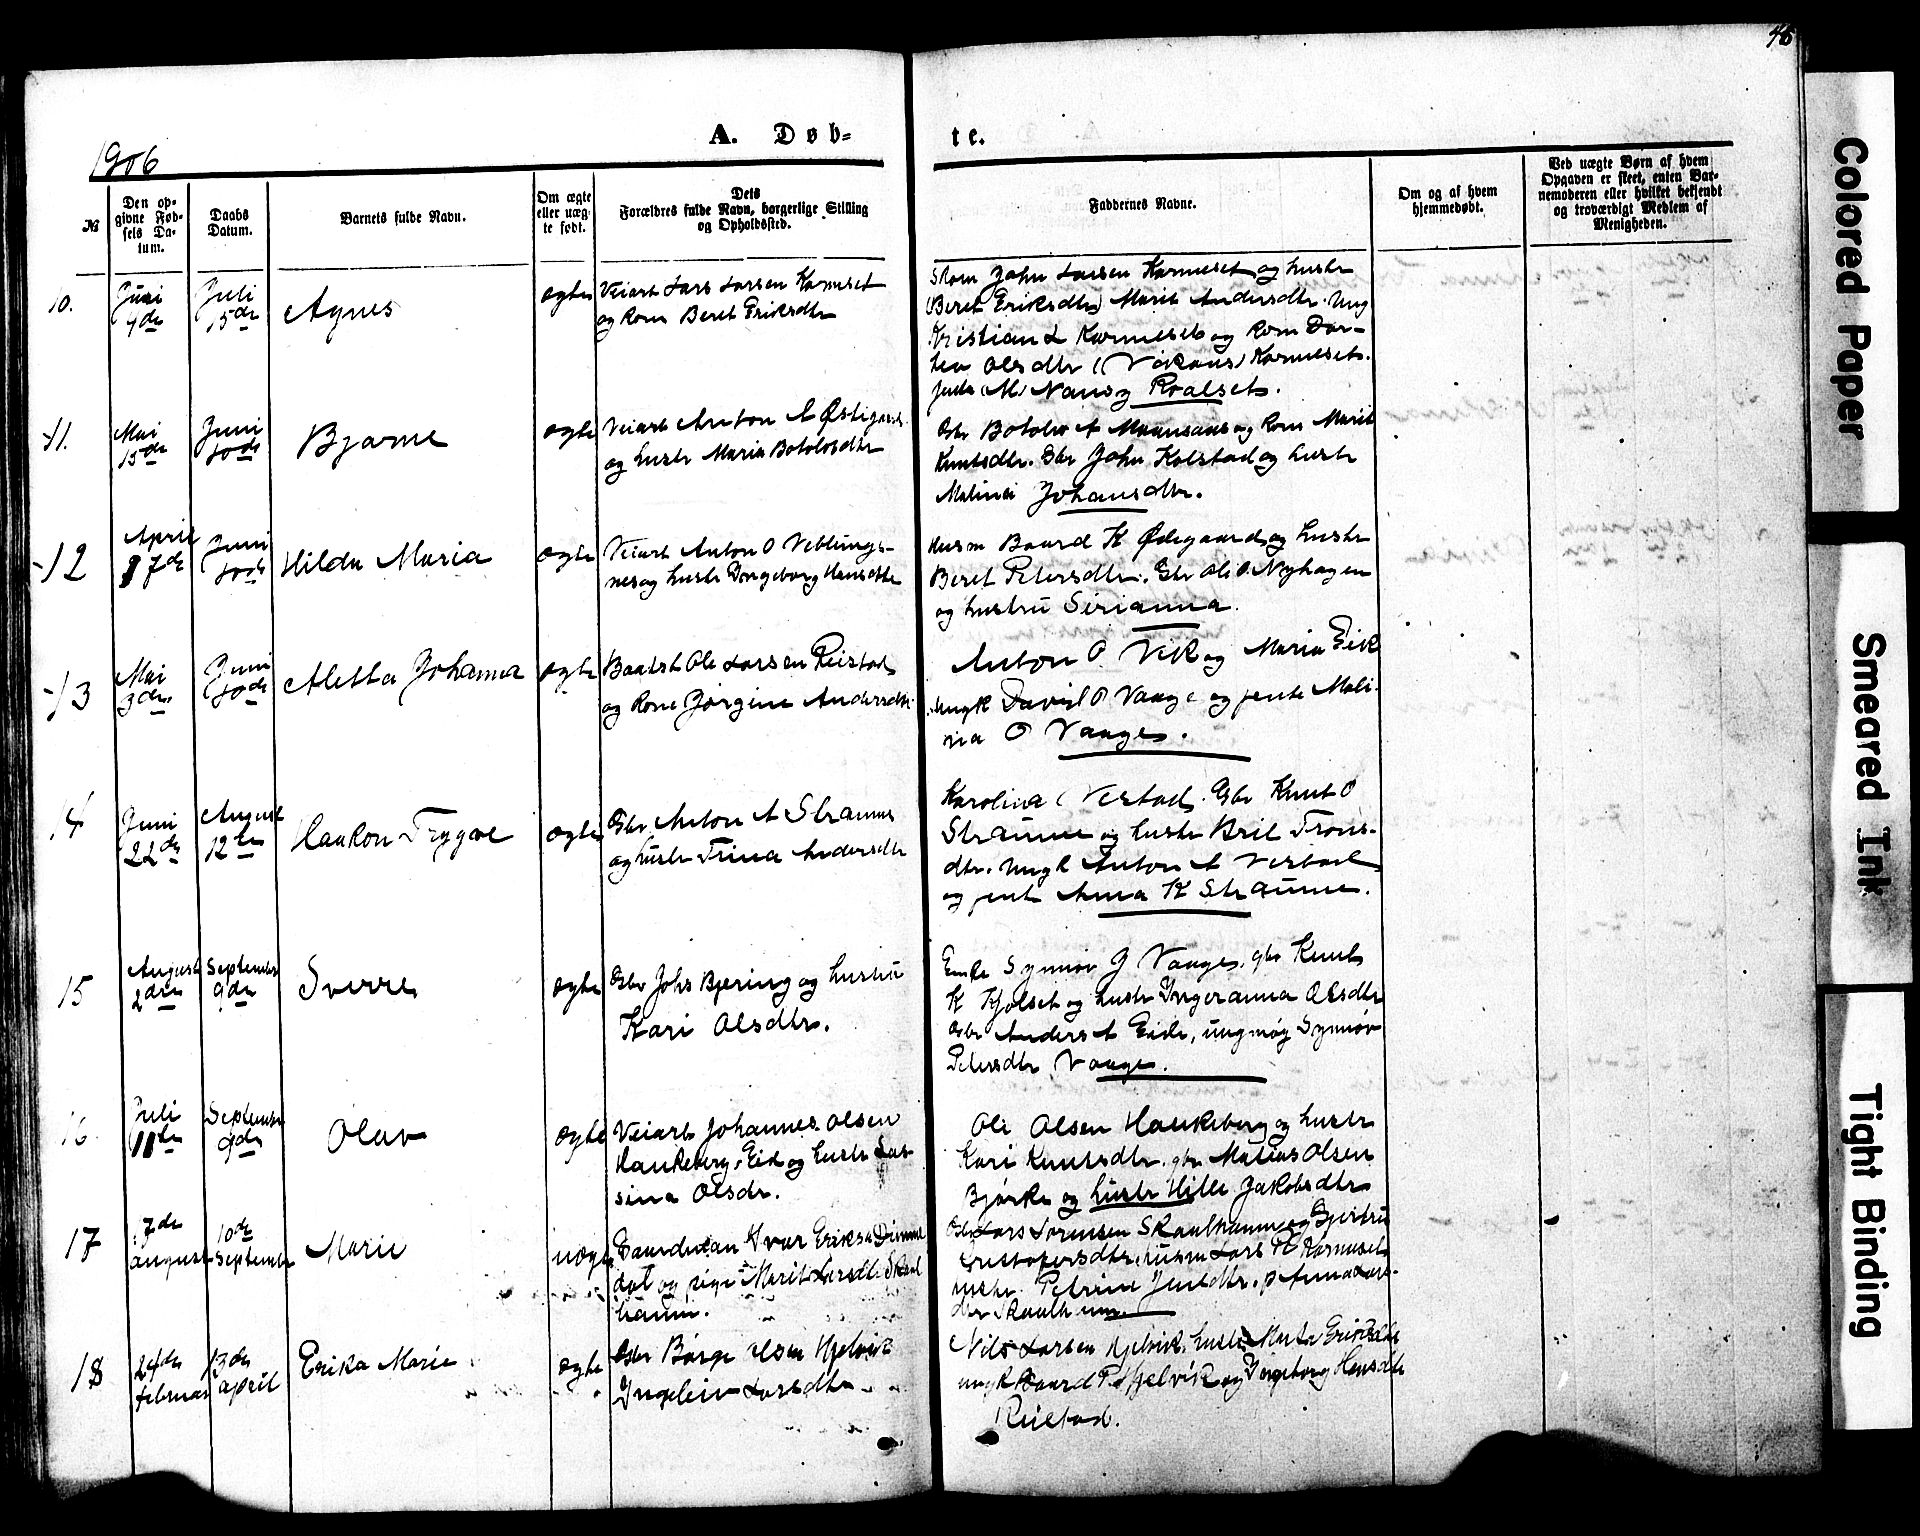 46
1906
A. Døb-
te.
№
Den op-
givne Fød-
sels Da-
tum.
Daabs
Datum.
Barnets fulde Navn.
Om ægte
eller uæg-
te født.
Dets
Forældres fulde Navn, borgerlige Stilling
og Opholdssted.
Faddernes Navne.
Om og af hvem
hjemmedøbt.
Ved uægte Børn af hvem
Opgaven er skeet, enten Bar-
nemoderen eller hvilket bekjendt
og troværdigt Medlem af
Menigheden.
10.
Juni
9de
Juli
15de
Agnes
ægte
Veiarb Lars Larsen Kormeset
og Kone Beret Eriksdtr
Skom John Larsen Kormeset og hustr
(Beret Eriksdtr) Marit Andersdtr. Ung
Kristian L Kormeset og Kone Dor-
tea Olsdtr Kormeset.
11.
Mai
15de
Juni
10de
Bjarne
ægte
Veiarb Anton A Østigaard
og hustr Maria Botolvsdtr
Gbr Botolv A Maansaas og Kone Marit
Knutsdtr. Gbr John Kolstad og hustr
Malina Johansdtr.
12
April
17de
Juni
10de
Hilda Maria
ægte
Veiarb Anton O Veblungs-
nes og hustr Ingeborg Hansdtr
Husm Baard K Ødegaard og hustr
Beret Petersdtr. Gbr Ole O. Nyhagen
og hustru Serianna.
13
Mai
3de
Juni
10de
Aletta Johanna
ægte
Baadsb Ole Larsen Reistad
og Kone Jørgine Andersdtr
Anton O Vik og Maria Eik
ungk David O Vaage og jente Mali-
na O Vaage.
14
Juni
22de
August
12te
Haakon Trygve
ægte
Gbr Anton A Straume
og hustr Trina Andersdtr
Karolina Verstad. Gbr Knut O
Straume og hustr Brit Trons-
dtr. Ungk Anton A Verstad
og jente Anna K Straume.
15
August
2den
September
9de
Sverre
ægte
Gbr Johs Bjering og hustru
Kari Olsdtr.
Enke Synnøv J Vaage. gbr Knut
K Kjølset og hustr Ingeranna Olsdtr
Gbr Anders A Eide, ungmøy Synnøv
Petersdtr Vaage.
16
Juli
11te
September
9de
Olav
ægte
Veiarb Johannes Olsen
Haukeberg, Eid og hustr Las-
sina Olsdr.
Ole Olsen Haukeberg og hustr
Kari Knutsdtr. gbr Matias Olsen
Bjørke og hustr Hille Jakobsdtr
17
7de
august
10de
September
Marie
uægte
Gaardman Ivar Eriksen Dimmel
dal og pige Marit Larsdtr Skaal
hamn.
Gbr Lars Sørensen Skaalhamn og Gjertru
Cristofersdtr, husm Lars R Kormeset
hustr Petrine Jensdtr. p Anna Lars-
dtr Skaalhamn.
18
24de
februar
13de
april
Erika Marie
ægte
Gbr Børge Olsen Hjelvik
Ingeleiv Larsdtr
Nils Larsen Hjelvik, hustr Marta Eriksdtr
ungk Baard P. Hjelvik og Ingeborg Hansdtr
Reistad.
Colored Paper
Smeared Ink
Tight Binding